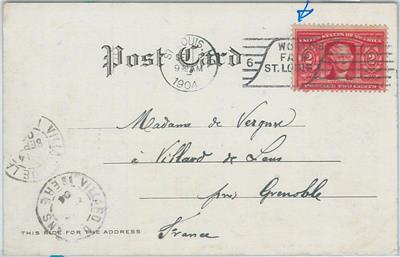 Post Card
ST LOUIS
9 AM
1904
6
WORLD'S
FAIR
ST. LOUIS
UNITED STATES OF AMERICA
2 2
POSTAGE TWO CENTS
Madame de
à Villard de Lans
près Grenoble
France
VILLARD
THIS SIDE FOR THE ADDRESS